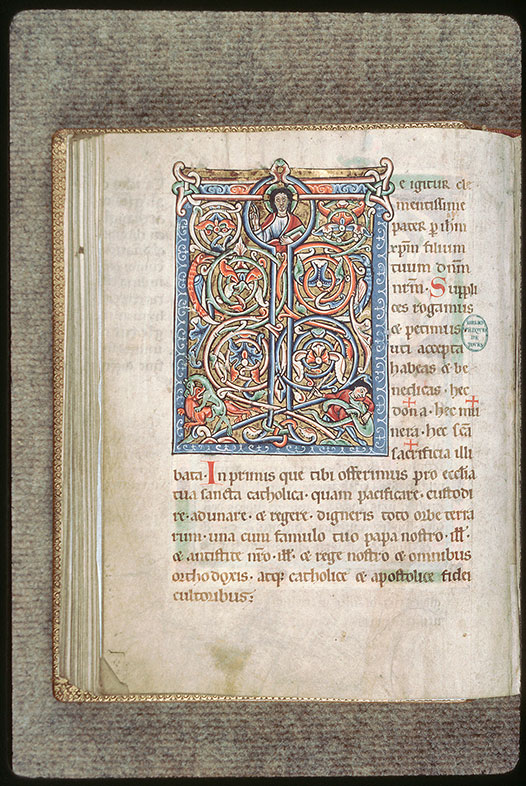 T
e igitur cle
mentissime
pater p ihm
xpm filium
tuum dnm
nrm. Suppli
ces rogamus
& petimus
uti accepta
habeas & be
nedicas. hec
dona. hec mu
nera. hec scā
sacrificia illi
bata. In primis que tibi offerimus pro ecclīa
tua sancta catholica. quam pacificare. custodi
re. adunare. & regere. digneris toto orbe terra
rum. una cum famulo tuo papa nostro. ill.
& antistite nr̄o. ill. & rege nostro & omnibus
orthodoxis. atq; catholice & apostolice fidei
cultoribus;
BIBLIO
THEQUE
DE
TOURS